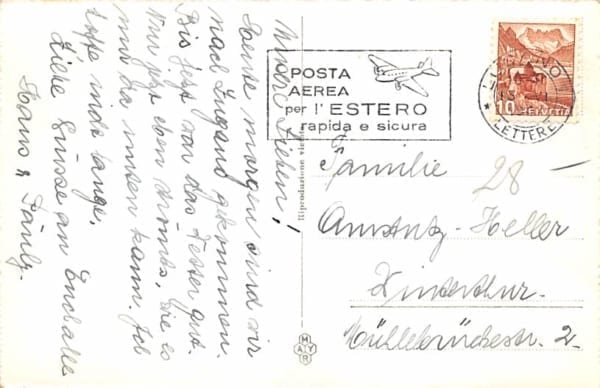 Meine Lieben!
Heute morgen sind wir
nach Lugano gekommen.
Bis jetzt war das Wetter gut.
Nur jetzt eben droht's, wie es
nur da unten kann. Ich
hoffe nicht lange.
Liebe Grüsse an Euch alle
Hans &
POSTA
AEREA
per l'ESTERO
rapida e sicura
LUGANO
LETTERE
10 HELVETIA
Riproduzione vietata
MAYR
Familie
28 —
Amstutz-Heller
Winterthur.
Mühlebrückestr. 2.